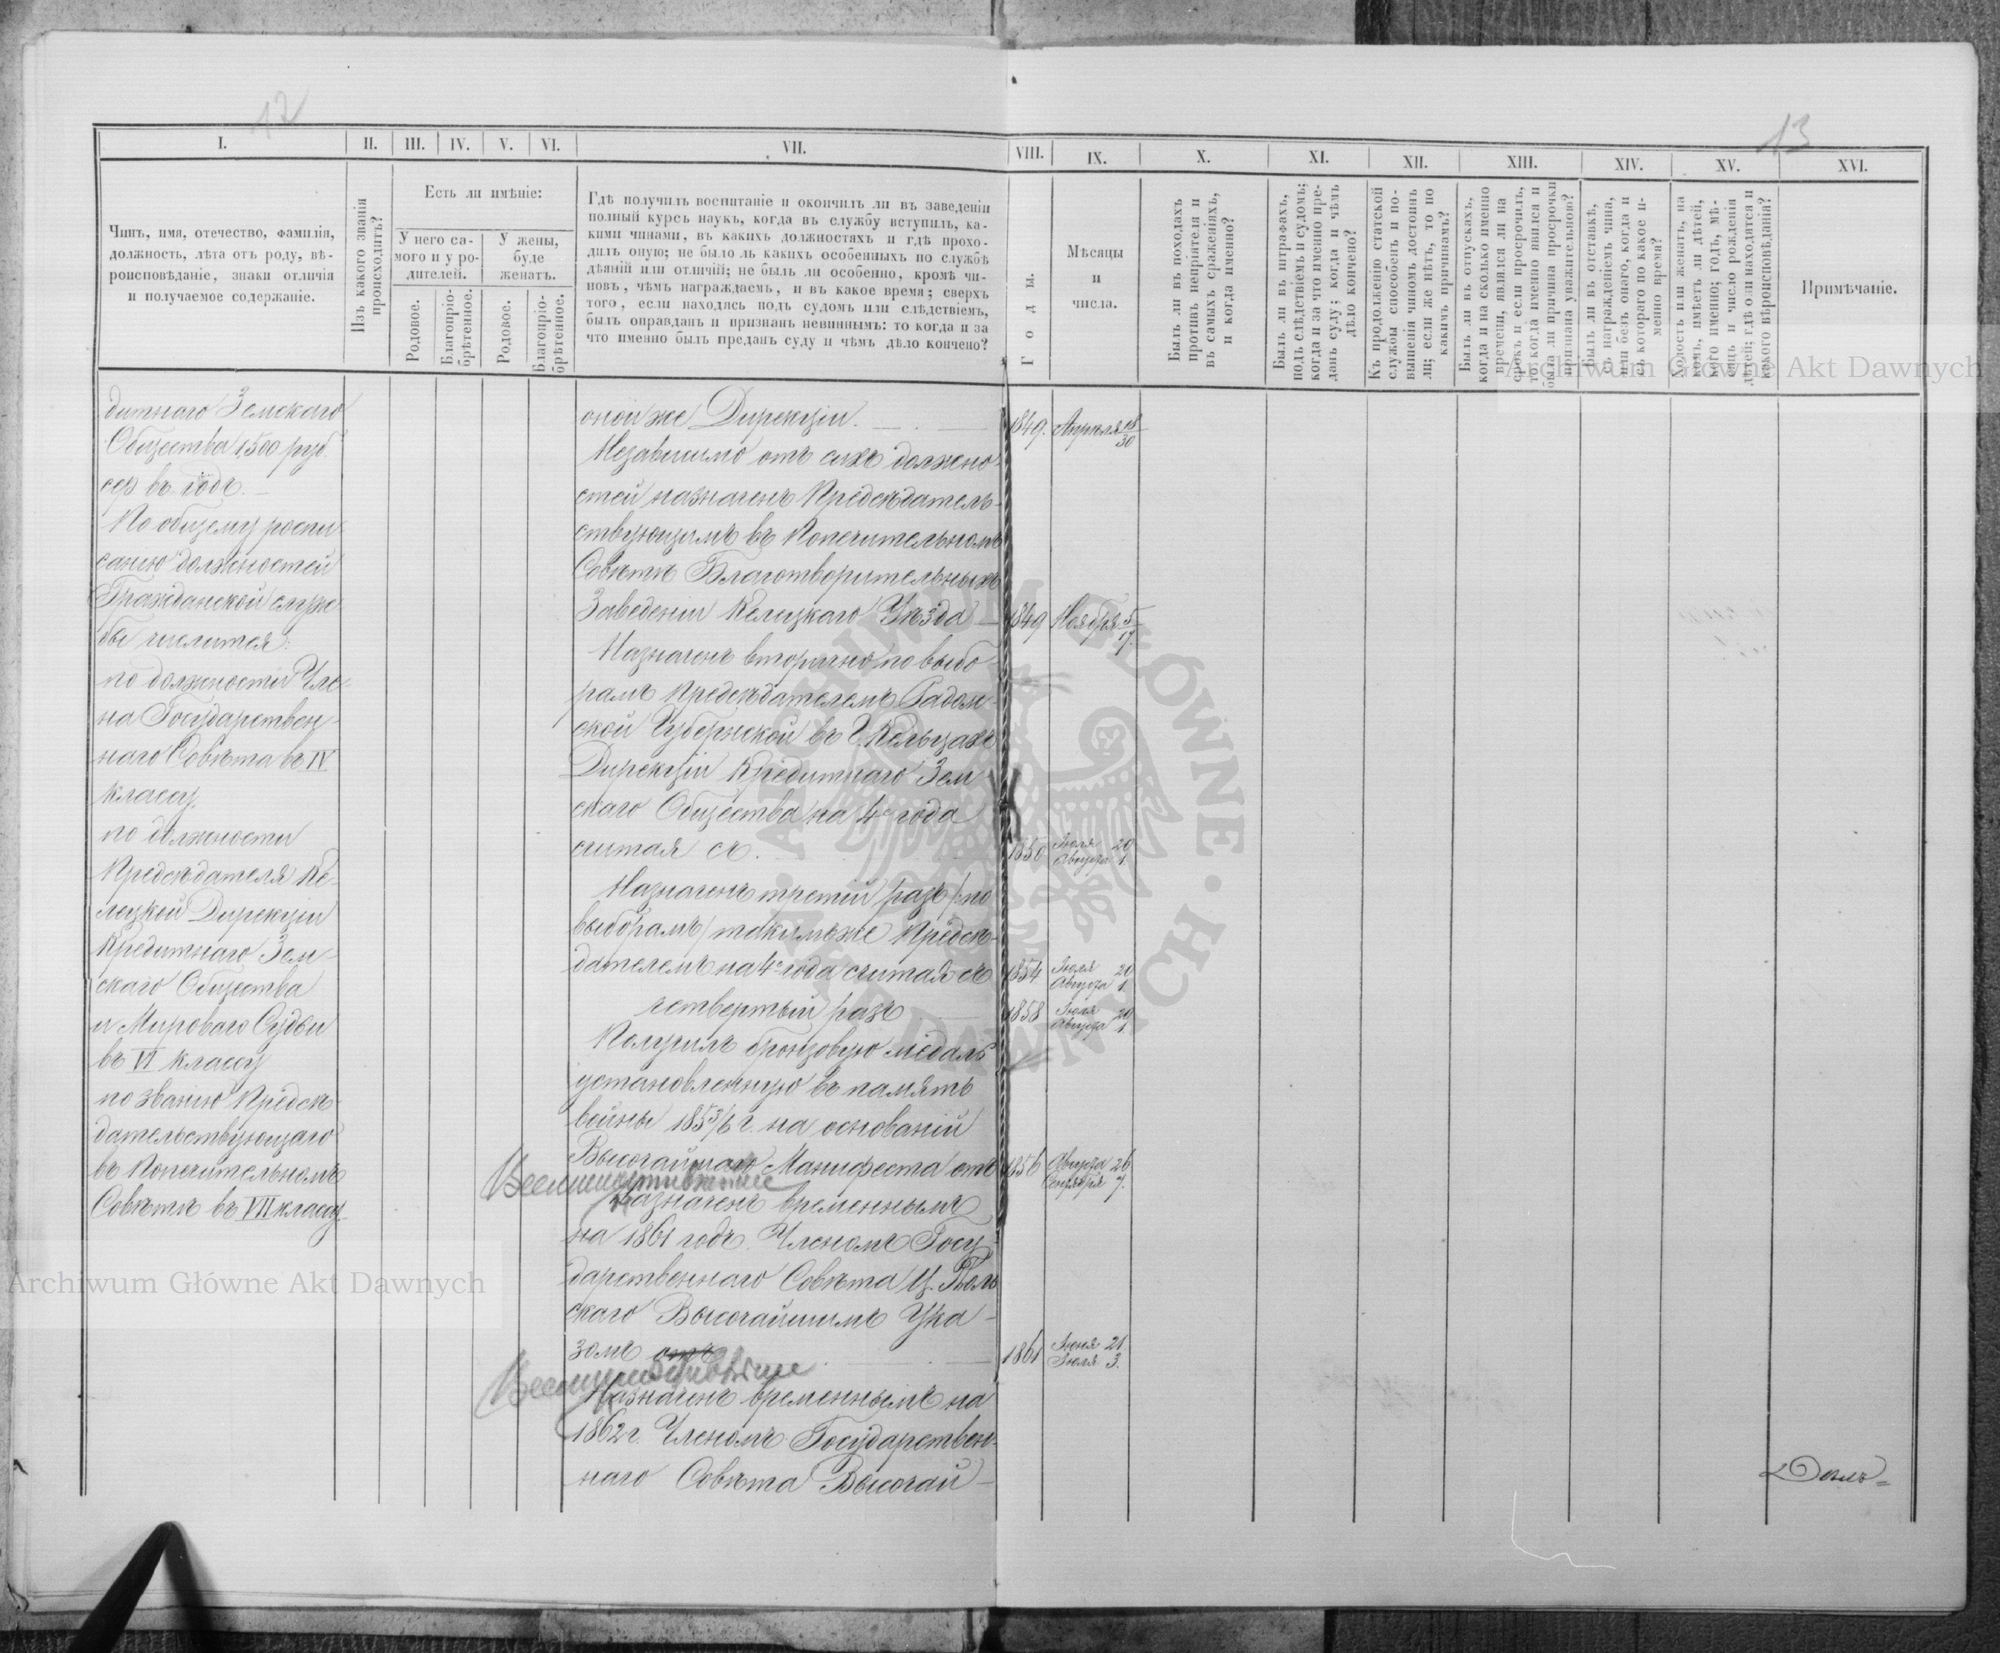 12
13
I.
II.
III.
IV.
V.
VI.
VII.
VIII.
IX.
X.
XI.
XII.
XIII.
XIV.
XV.
XVI.
Чинъ, имя, отечество, фамилія,
должность, лѣта отъ роду, вѣ-
роисповѣданіе, знаки отличія
и получаемое содержаніе.
Изъ какого званія
происходитъ?
Есть ли имѣніе:
У него са-
мого и у ро-
дителей.
У жены,
буде
женатъ.
Родовое.
Благопріо-
брѣтенное.
Родовое.
Благопріо-
брѣтенное.
Гдѣ получилъ воспитаніе и окончилъ ли въ заведеніи
полный курсъ наукъ, когда въ службу вступилъ, ка-
кими чинами, въ какихъ должностяхъ и гдѣ прохо-
дилъ оную; не было ль какихъ особенныхъ по службѣ
дѣяній или отличій; не былъ ли особенно, кромѣ чи-
новъ, чѣмъ награждаемъ, и въ какое время; сверхъ
того, если находясь подъ судомъ или слѣдствіемъ,
былъ оправданъ и признанъ невиннымъ: то когда и за
что именно былъ преданъ суду и чѣмъ дѣло кончено?
Годы.
Мѣсяцы
и
числа.
Былъ ли въ походахъ
противъ непріятеля и
въ самыхъ сраженіяхъ,
и когда именно?
Былъ ли въ штрафахъ,
подъ слѣдствіемъ и судомъ;
когда и за что именно пре-
данъ суду; когда и чѣмъ
дѣло кончено?
Къ продолженію статской
службы способенъ и по-
вышенія чиномъ достоинъ
ли; если же нѣтъ, то по
какимъ причинамъ?
Былъ ли въ отпускахъ,
когда и на сколько именно
времени, явился ли на
срокъ и если просрочилъ,
то когда именно явился и
была ли причина просрочки
признана уважительною?
Былъ ли въ отставкѣ,
съ награжденіемъ чина,
или безъ онаго, когда и
съ котораго по какое и-
менно время?
Холостъ или женатъ, на
комъ, имѣетъ ли дѣтей,
кого именно; годъ, мѣ-
сяцъ и число рожденія
дѣтей; гдѣ они находятся и
какого вѣроисповѣданія?
Примѣчаніе.
дитнаго Земскаго
Общества 1,500 руб.
сер. въ годъ.
По общему роспи-
санію должностей
Гражданской служ-
бы числится:
по должности Чле-
на Государствен-
наго Совѣта въ IV
классу.
по должности
Предсѣдателя Кѣ-
лецкой Дирекціи
Кредитнаго Зем-
скаго Общества
и Мироваго Судьи
въ VI классу
по званію Предсѣ-
дательствующаго
въ Попечительномъ
Совѣтѣ въ VII классу
оной же Дирекціи. 1849. Апрѣля 18/30
Независимо отъ сихъ должно-
стей назначенъ Предсѣдатель-
ствующимъ въ Попечительномъ
Совѣтѣ Благотворительныхъ
Заведеній Келецкаго Уѣзда 1849 Ноября 5/17.
Назначенъ вторично по выбо-
рамъ Предсѣдателемъ Радом-
ской Губернской въ Г. Кельцахъ
Дирекціи Кредитнаго Зем-
скаго Общества на 4 года
считая съ. 1850 Іюля 20 Августа 1.
Назначенъ третій разъ /по
выборамъ/ такимъ же Предсѣ-
дателемъ на 4 года считая съ 1854 Іюля 20 Августа 1.
четвертый разъ 1858 Іюля 20 Августа 1.
Получилъ бронзовую медаль
установленную въ память
войны 1853/6 г. на основаніи
Высочайшаго Манифеста отъ 1856 Августа 26 Сентября 7.
Всемилостивѣйше
Назначенъ временнымъ
на 1861 годъ Членомъ Госу-
дарственнаго Совѣта Ц. Поль-
скаго Высочайшимъ Ука-
зомъ отъ 1861 Іюня 21. Іюля 3.
Всемилостивѣйше
Назначенъ временнымъ на
1862 г. Членомъ Государствен-
наго Совѣта Высочай-
Archiwum Główne Akt Dawnych
Archiwum Główne Akt Dawnych
ARCHIWUM GŁÓWNE AKT DAWNYCH